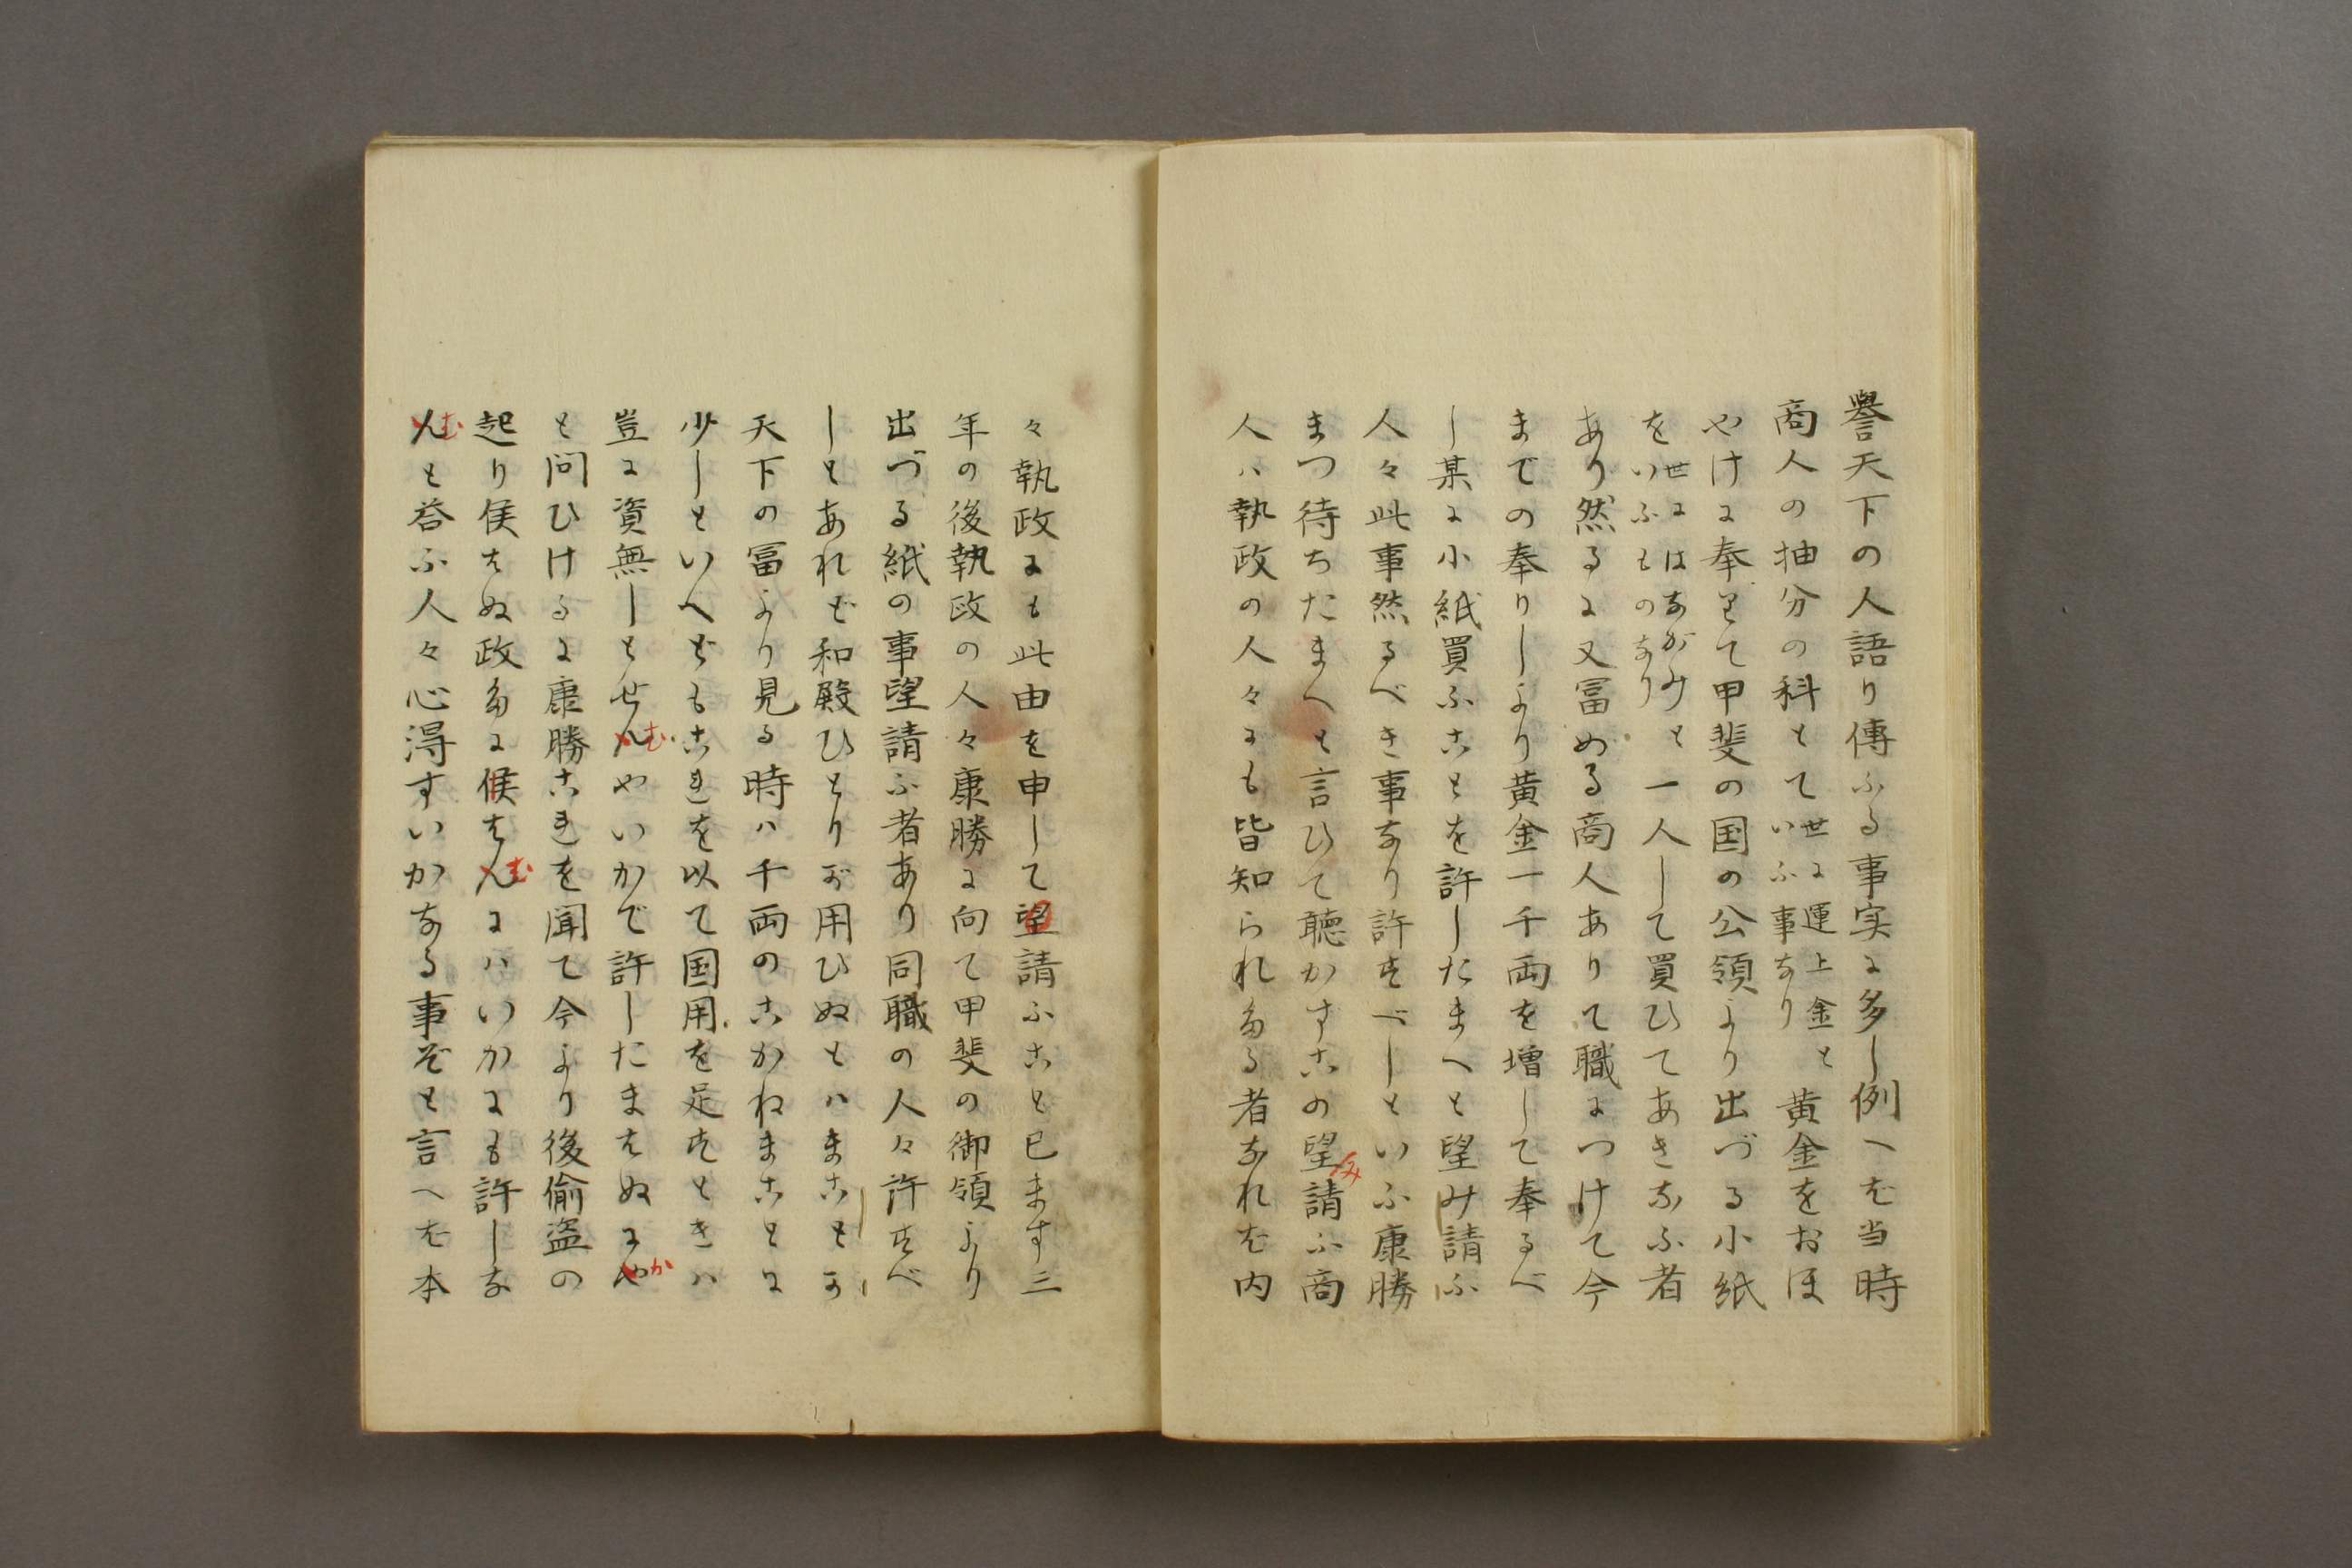 誉天下の人語り傳ふる事実に多し例へば当時
商人の抽分の科とて世に運上金といふ事なり黄金をおほ
やけに奉りて甲斐の国の公領より出づる小紙
を世にはながみといふものなり一人して買ひてあきなふ者
あり然るに又冨める商人ありて職につけて今
までの奉りしより黄金一千両を増して奉るべ
し某に小紙買ふことを許したまへと望み請ふ
人々此事然るべき事なり許すべしといふ康勝
まつ待ちたまへと言ひて聴かすこの望み請ふ商
人ハ執政の人々にも皆知られたる者なれば内
々執政にも此由を申して望請ふこと已ます三
年の後執政の人々康勝に向て甲斐の御領より
出づる紙の事望請ふ者あり同職の人々許すべ
しとあれど和殿ひとりが用ひぬとハまことか
天下の冨より見る時ハ千両のこかねまことに
少しといへどもこれを以て国用を足すときハ
豈に資無しとせんむやいかで許したまはぬにやか
と問ひけるに康勝これを聞て今より後偷盗の
起り侯はぬ政たに候はんむにハいかにも許しな
んむと答ふ人々心得すいかなる事ぞと言へば本